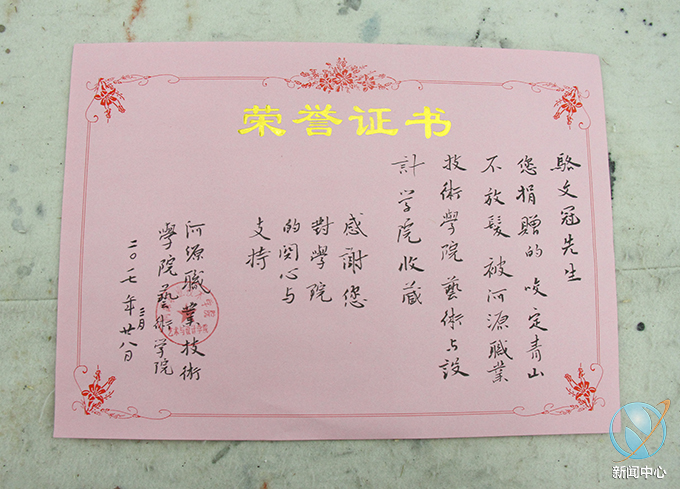 荣誉证书
駱文冠先生
您捐贈的咬定青山
不放鬆被河源職業
技術學院藝術与設
計学院收藏
感謝您
對學院
的関心与
支持
河源職業技術
學院藝術学院
二〇一七年三月廿八日
新闻中心